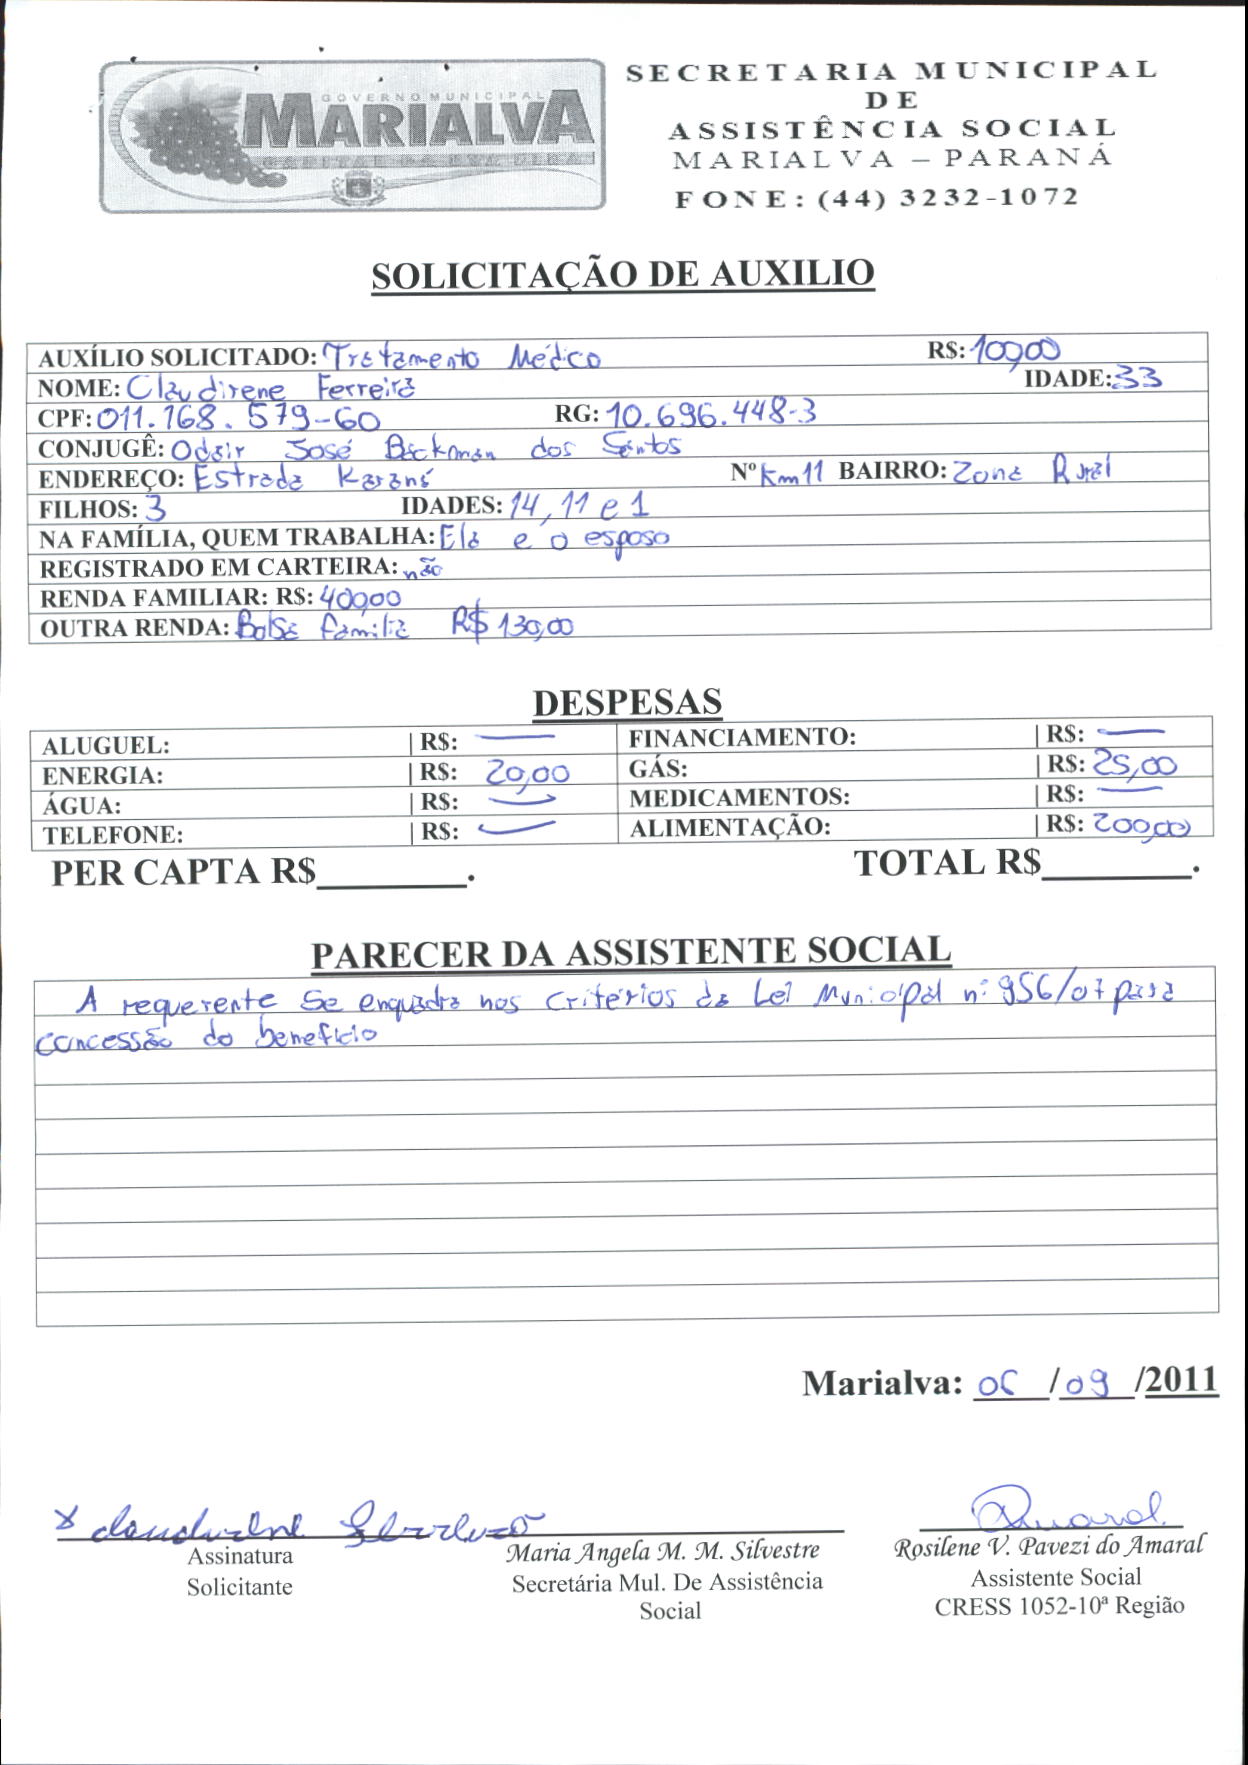 GOVERNO MUNICIPAL
MARIALVA
CAPITAL DA UVA FINA
SECRETARIA MUNICIPAL
DE
ASSISTÊNCIA SOCIAL
MARIALVA – PARANÁ
FONE: (44) 3232-1072
SOLICITAÇÃO DE AUXILIO
AUXÍLIO SOLICITADO: Tratamento Médico R$: 100,00
NOME: Claudirene Ferreira IDADE: 33
CPF: 011.168.579-60 RG: 10.696.448-3
CONJUGÊ: Odair José Backman dos Santos
ENDEREÇO: Estrada Karaná Nº Km 11 BAIRRO: Zona Rural
FILHOS: 3 IDADES: 14, 11 e 1
NA FAMÍLIA, QUEM TRABALHA: Ela e o esposo
REGISTRADO EM CARTEIRA: não
RENDA FAMILIAR: R$: 400,00
OUTRA RENDA: Bolsa família R$ 130,00
DESPESAS
ALUGUEL: | R$: — FINANCIAMENTO: | R$: —
ENERGIA: | R$: 20,00 GÁS: | R$: 25,00
ÁGUA: | R$: — MEDICAMENTOS: | R$: —
TELEFONE: | R$: — ALIMENTAÇÃO: | R$: 200,00
PER CAPTA R$________. TOTAL R$________.
PARECER DA ASSISTENTE SOCIAL
A requerente se enquadra nos critérios da Lei Municipal nº 956/07 para
concessão do benefício
Marialva: 06 /09 /2011
x Claudirene Ferreira Amaral
Assinatura Maria Angela M. M. Silvestre Rosilene V. Pavezi do Amaral
Solicitante Secretária Mul. De Assistência Assistente Social
Social CRESS 1052-10ª Região